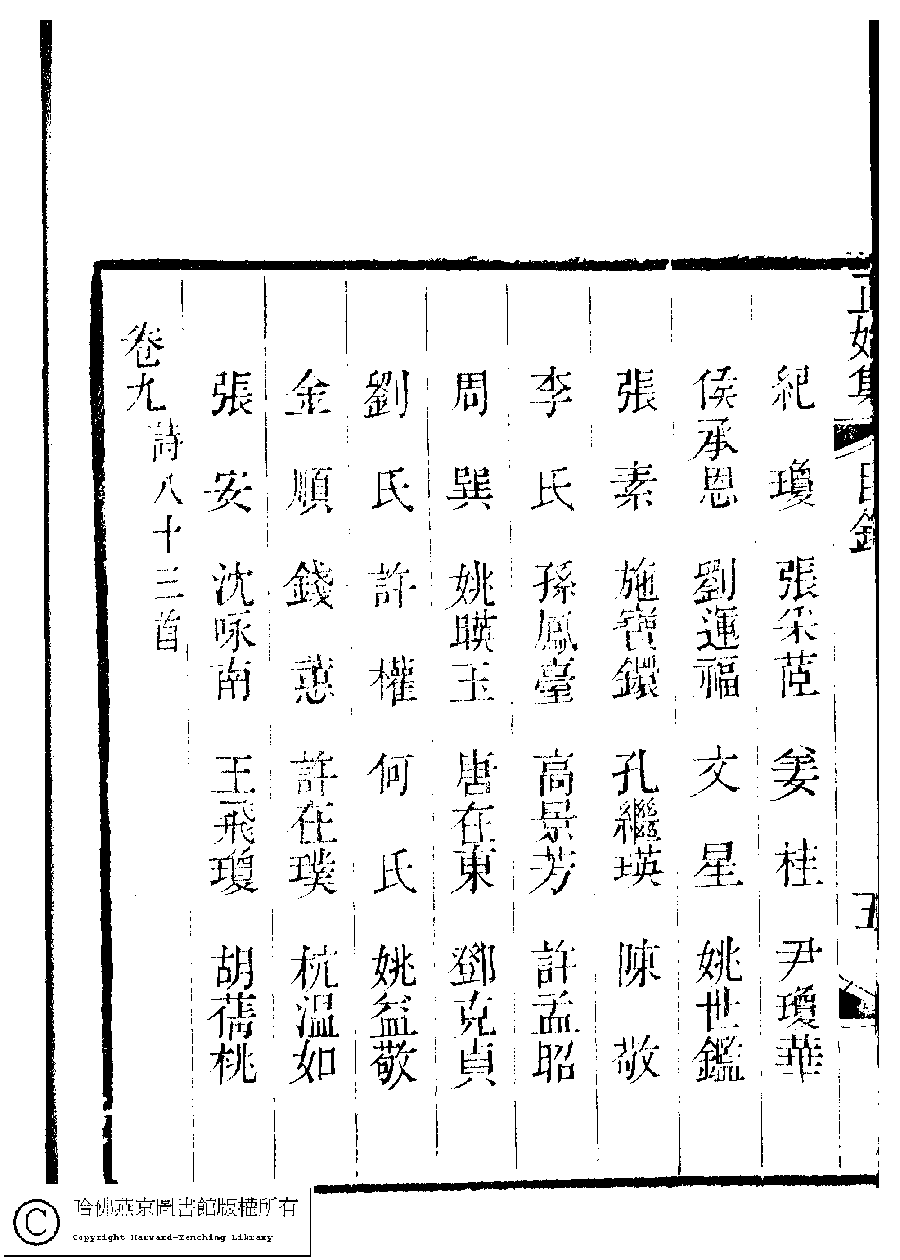 正始集 目錄 五
紀 瓊 張采茝 姜 桂 尹瓊華
侯承恩 劉運福 文 星 姚世鑑
張 素 施寶鐶 孔繼瑛 陳 敬
李 氏 孫鳳臺 高景芳 許孟昭
周 巽 姚暎玉 唐在東 鄧克貞
劉 氏 許 權 何 氏 姚益敬
金 順 錢 蕙 許在璞 杭溫如
張 安 沈啄南 王飛瓊 胡蒨桃
卷九 詩八十三首
哈佛燕京圖書館版權所有
Copyright Harvard-Yenching Library